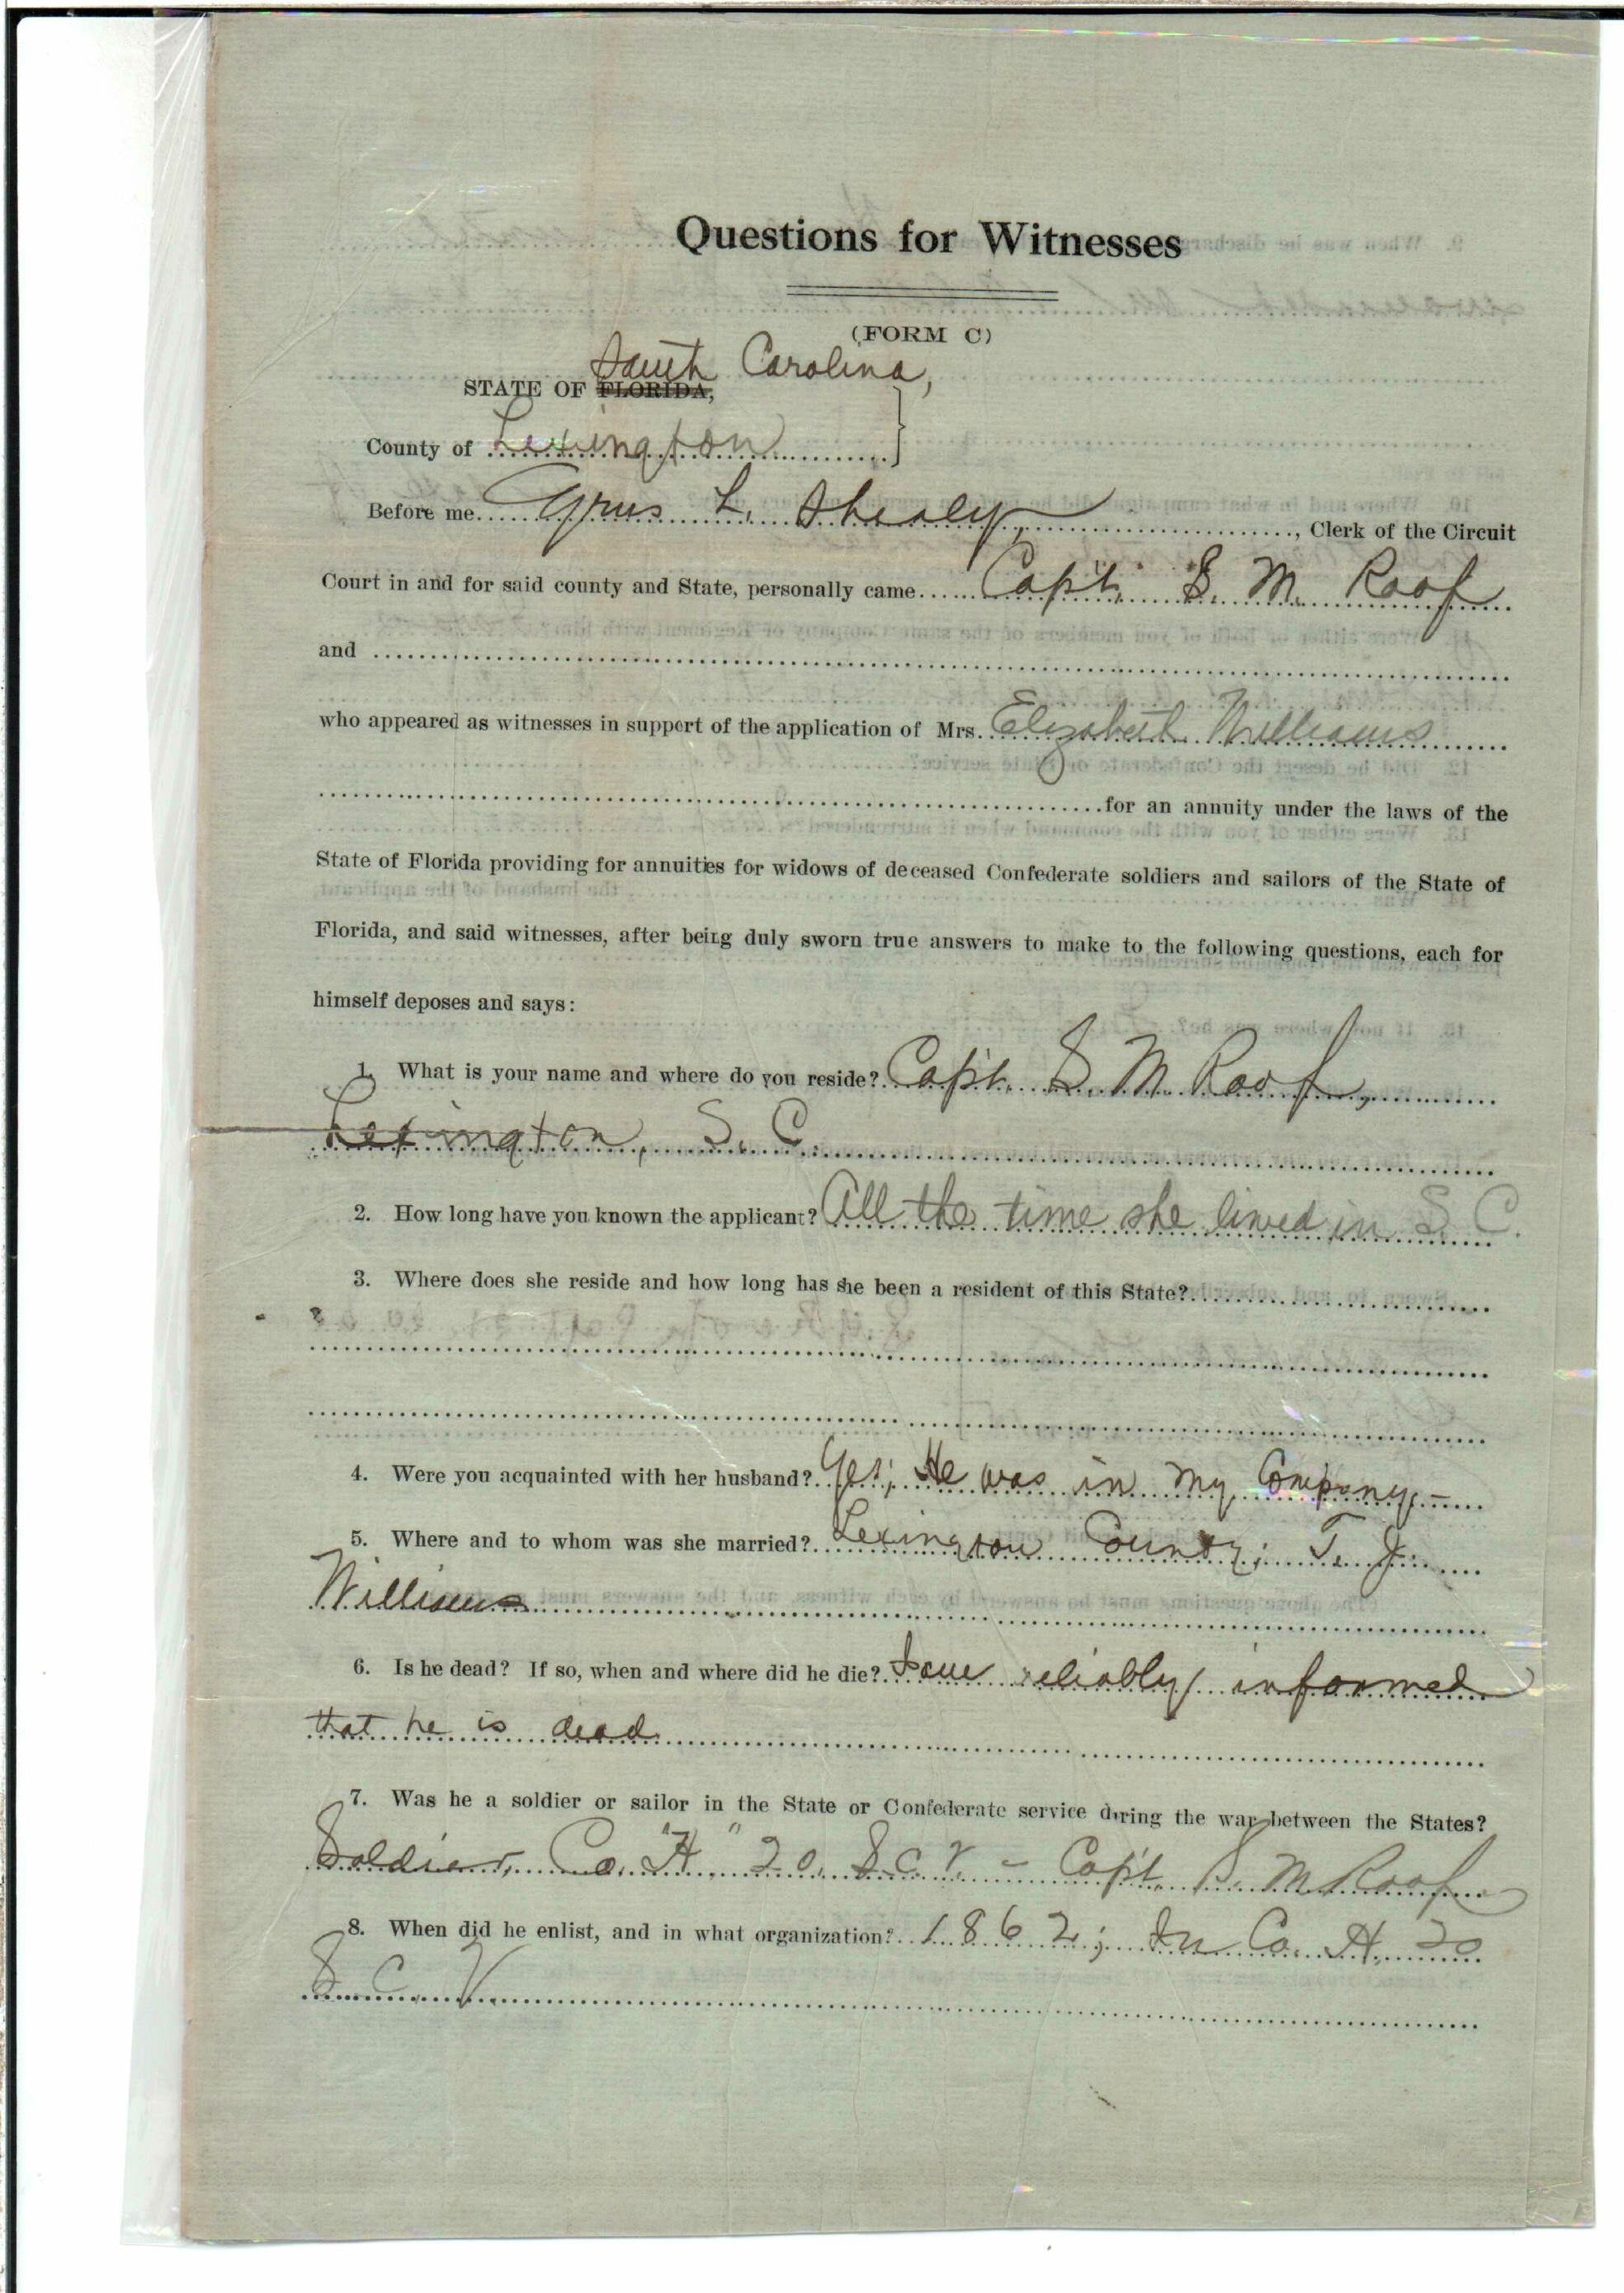 Questions for Witnesses
(FORM C)
South Carolina,
STATE OF FLORIDA,
County of Lexington
Before me Cyrus L. Shealy, Clerk of the Circuit
Court in and for said county and State, personally came Capt. S. M. Roof
and
who appeared as witnesses in support of the application of Mrs. Elizabeth Williams
for an annuity under the laws of the
State of Florida providing for annuities for widows of deceased Confederate soldiers and sailors of the State of
Florida, and said witnesses, after being duly sworn true answers to make to the following questions, each for
himself deposes and says:
1. What is your name and where do you reside? Capt. S. M. Roof,
Lexington, S. C.
2. How long have you known the applicant? All the time she lived in S. C.
3. Where does she reside and how long has she been a resident of this State?
4. Were you acquainted with her husband? Yes; He was in my Company –
5. Where and to whom was she married? Lexington County; T. J.
Williams
6. Is he dead? If so, when and where did he die? reliably informed
that he is dead
7. Was he a soldier or sailor in the State or Confederate service during the war between the States?
Soldier, Co. "H" 20. S. C. V. – Capt. S. M. Roof
8. When did he enlist, and in what organization? 1862; In Co. H. 20
S. C. V.